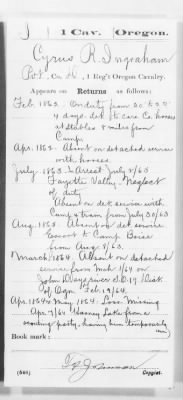 J | 1 Cav. | Oregon.
Cyrus R. Ingraham
Pvt., Co. H, 1 Reg't Oregon Cavalry.
Appears on Returns as follows:
Feb. 1862. On duty from 20 to
4 days det to care Co. horses
at stables 8 miles from
Camp.
Apr. 1862. Absent on detached service
with horses.
July 1863. In Arrest July 4/63
Fayette Valley. Neglect
of duty
Absent on det service with
Camp & train from July 30/63
Aug. 1863. Absent on det service
Escort to Camp Boise
from Aug. 5/63.
March/1864. Absent on detached
service from Mch 1/64 on
John Days river S.O. 19 Dist
of Ogn Feb. 19/64.
Apr. 1864 & May 1864. Loss. Missing
Apr. 7/64 Honey Lake from a
scouting party, having been temporarily
Book mark:
(546)
Copyist.